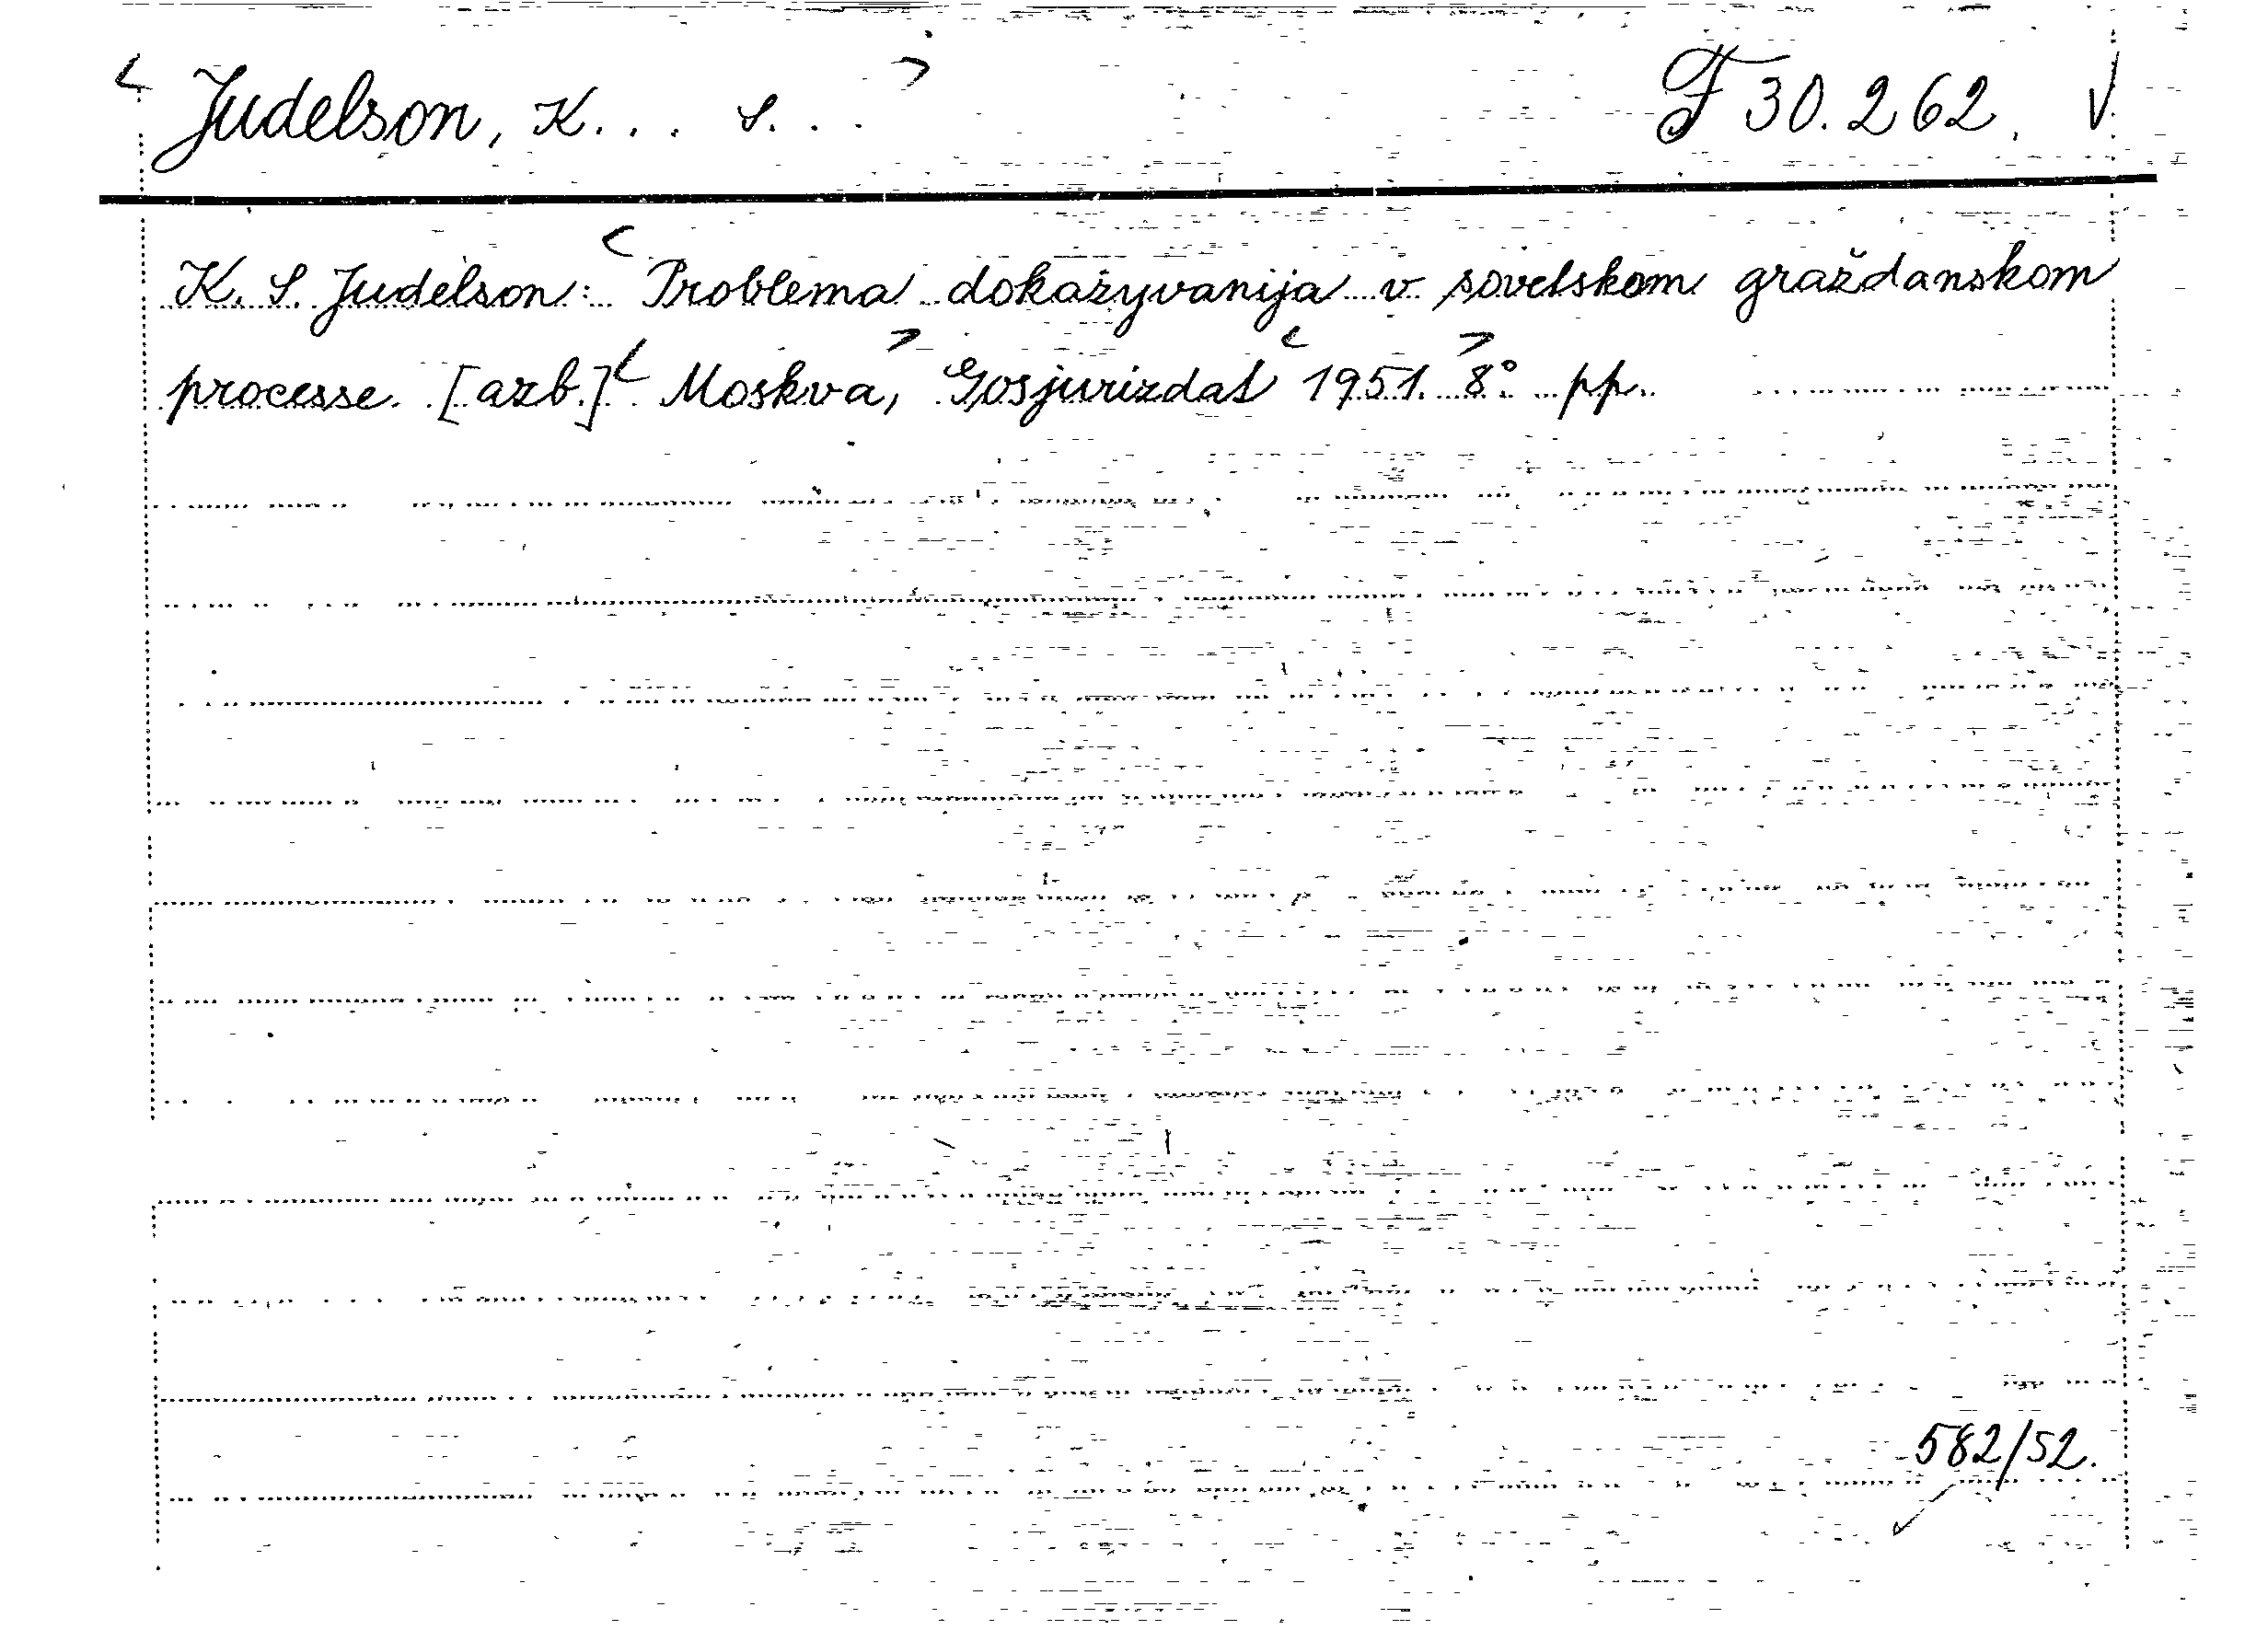 < Judelson, K... S... > F 30.262. √
K. S. Judelson: < Problema dokazyvanija v sovetskom graždanskom
processe. [azb.] < Moskva, > Gosjurizdat < 1951. > 8° pp.
582/52. ✓